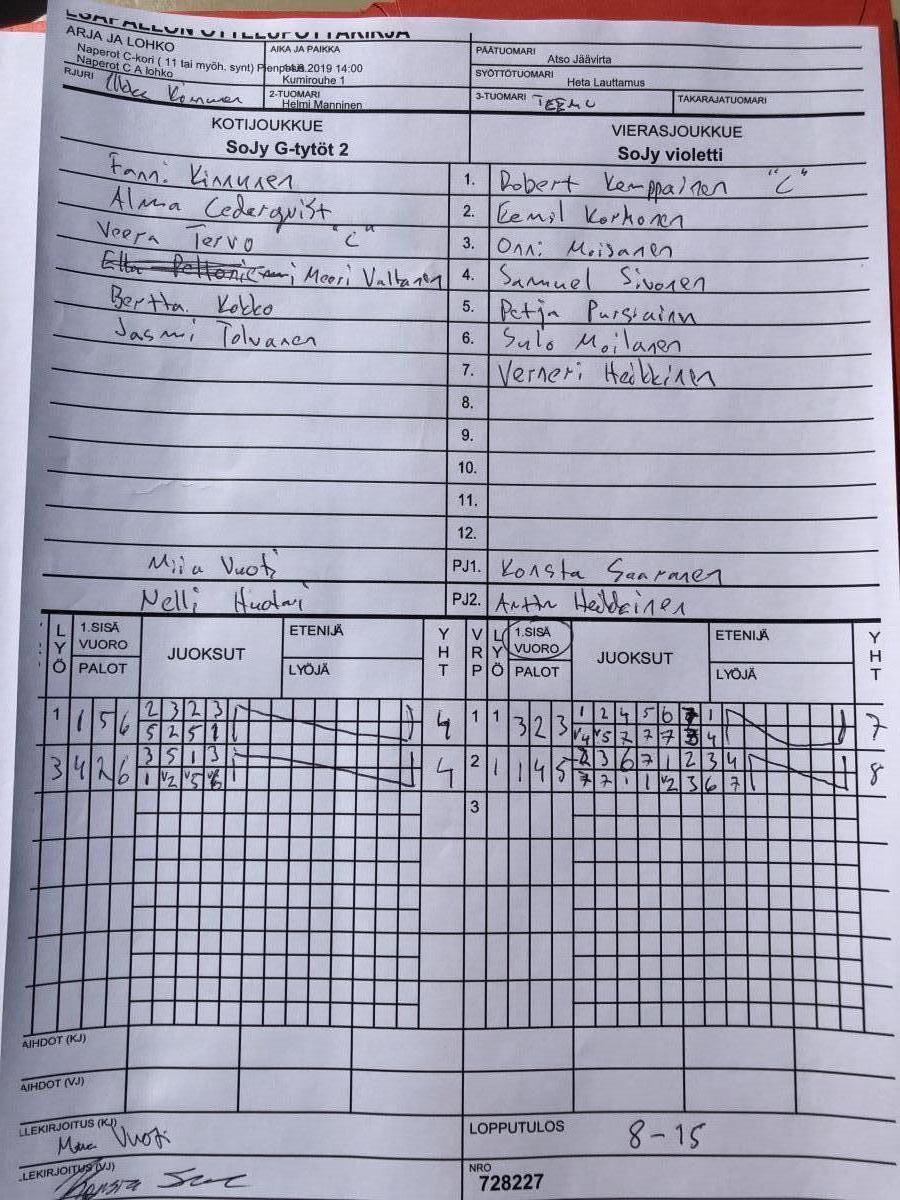 ESÄPALLON OTTELUPÖYTÄKIRJA
ARJA JA LOHKO
Naperot C-kori ( 11 tai myöh. synt) Pienpesis
Naperot C A lohko
AIKA JA PAIKKA
14.8.2019 14:00
Kumirouhe 1
PÄÄTUOMARI
Atso Jäävirta
SYÖTTÖTUOMARI
Heta Lauttamus
RJURI
2-TUOMARI
Helmi Manninen
3-TUOMARI TEEMU
TAKARAJATUOMARI
KOTIJOUKKUE
SoJy G-tytöt 2
VIERASJOUKKUE
SoJy violetti
Fanni Kinnunen 1. Robert Kemppainen "C"
Alma Cederqvist 2. Eemil Korhonen
Veera Tervo "C" 3. Onni Moisanen
Meeri Valtanen 4. Samuel Sivonen
Bertta Kokko 5. Petja Pursiainn
Jasmi Tolvanen 6. Sulo Moilanen
7. Verneri Heikkinen
8.
9.
10.
11.
12.
Miia Vuoti PJ1. Konsta Saaranen
Nelli Huotari PJ2. Antti Heikkinen
LYÖ 1.SISÄ VUORO PALOT JUOKSUT ETENIJÄ LYÖJÄ YHT VRP LYÖ 1.SISÄ VUORO PALOT JUOKSUT ETENIJÄ LYÖJÄ YHT
1 1 5 6 2 3 2 3 4 1 1 3 2 3 1 2 4 5 6 7 1 7
5 2 5 1 V4 V5 7 7 7 3 4
3 4 2 6 3 5 1 3 4 2 1 1 4 5 2 3 6 7 1 2 3 4 8
1 V2 V5 V6 7 7 1 1 V2 3 6 7
3
AIHDOT (KJ)
AIHDOT (VJ)
LLEKIRJOITUS (KJ)
Vuoti
LOPPUTULOS 8-15
LEKIRJOITUS (VJ)
Konsta
NRO
728227